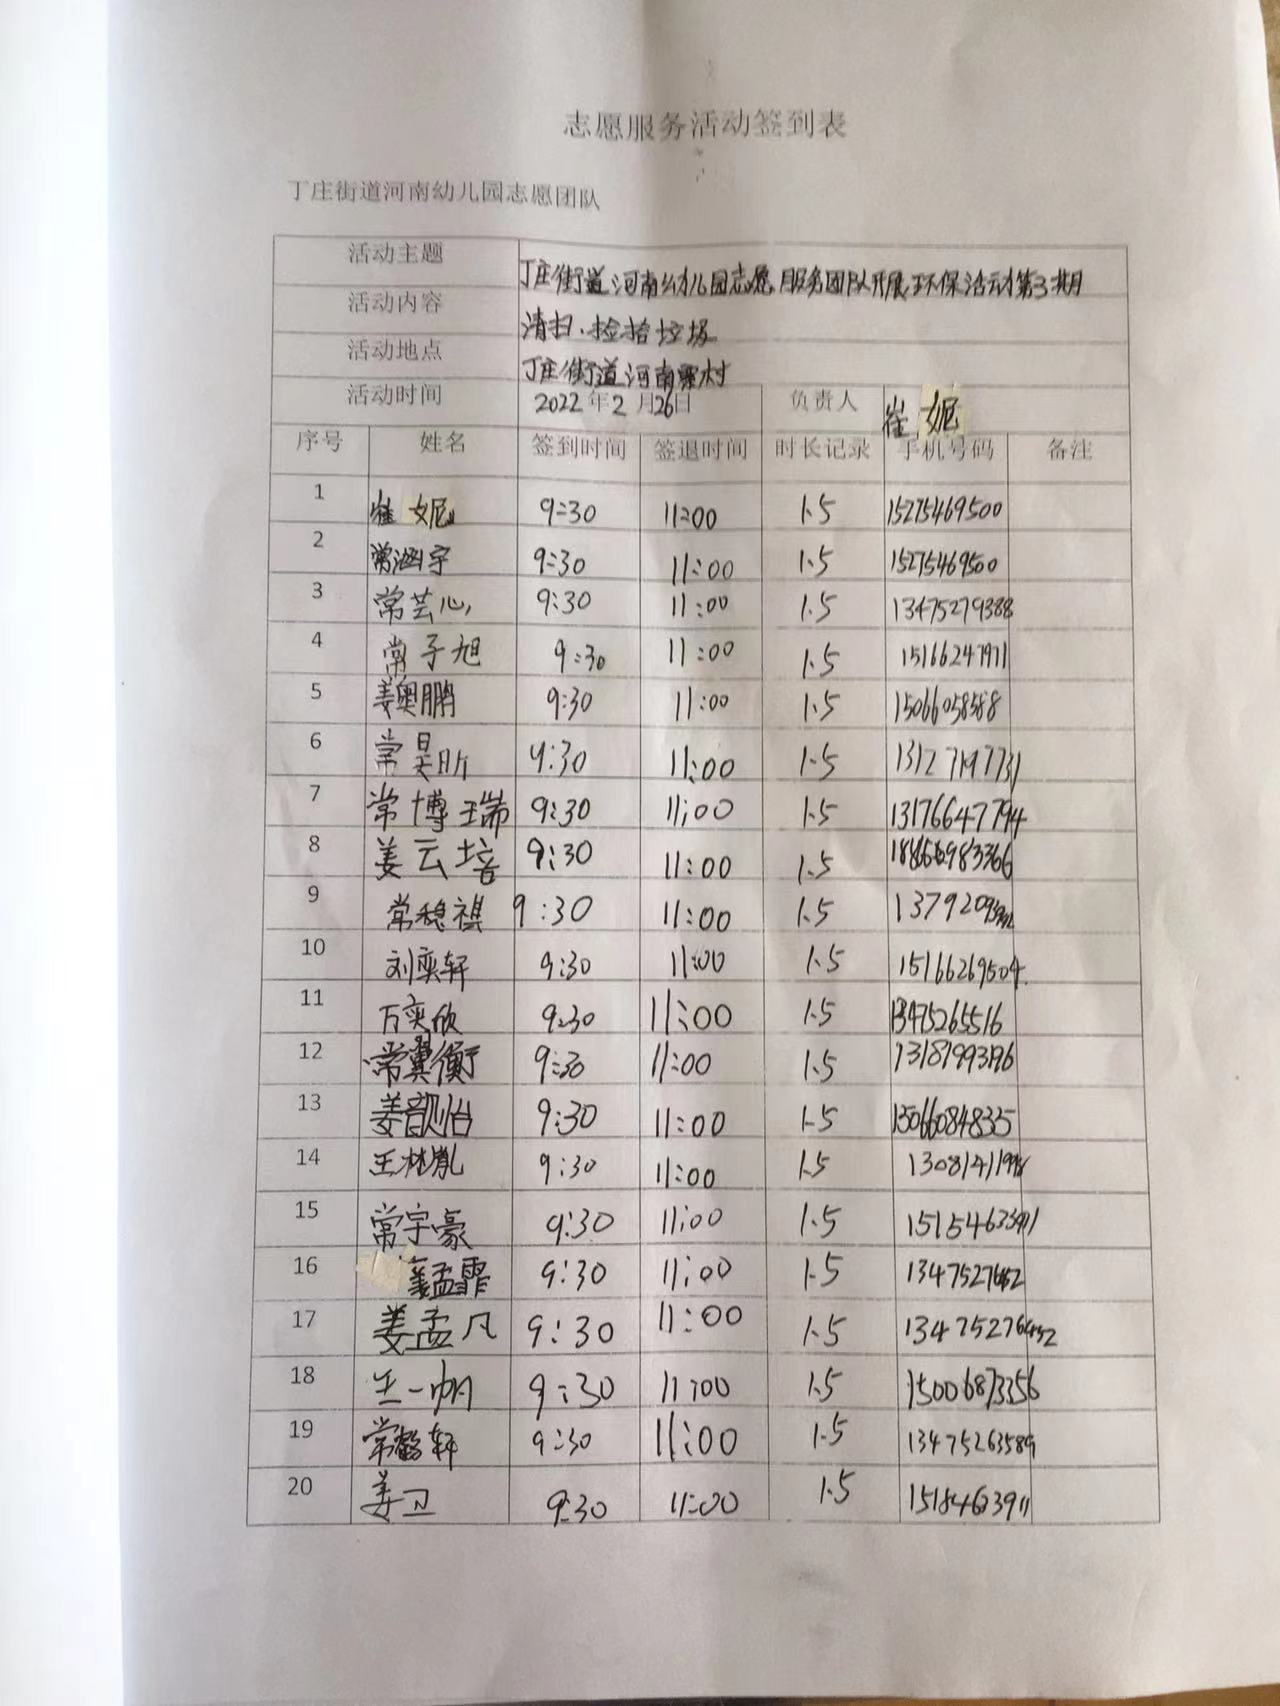 志愿服务活动签到表
丁庄街道河南幼儿园志愿团队
活动主题 丁庄街道河南幼儿园志愿服务团队开展环保活动第3期
活动内容 清扫、捡拾垃圾
活动地点 丁庄街道河南村
活动时间 2022年2月26日 负责人 崔妮
序号 姓名 签到时间 签退时间 时长记录 手机号码 备注
1 崔妮 9:30 11:00 1.5 15275469500
2 常涵宇 9:30 11:00 1.5 15275469500
3 常芸心 9:30 11:00 1.5 13475279388
4 常子旭 9:30 11:00 1.5 15166247971
5 姜奥鹏 9:30 11:00 1.5 15066058588
6 常昊昕 9:30 11:00 1.5 13127197731
7 常博瑞 9:30 11:00 1.5 13176647794
8 姜云培 9:30 11:00 1.5
9 常稳祺 9:30 11:00 1.5
10 刘奕轩 9:30 11:00 1.5 15166269504
11 万奕欣 9:30 11:00 1.5 13475265516
12 常翼衡 9:30 11:00 1.5
13 姜韵怡 9:30 11:00 1.5 15066084835
14 王林胤 9:30 11:00 1.5
15 常宇豪 9:30 11:00 1.5
16 姜孟霏 9:30 11:00 1.5
17 姜孟凡 9:30 11:00 1.5 13475276452
18 王一帆 9:30 11:00 1.5 15006873356
19 常轩 9:30 11:00 1.5 13475263589
20 姜卫 9:30 11:00 1.5 15184623911